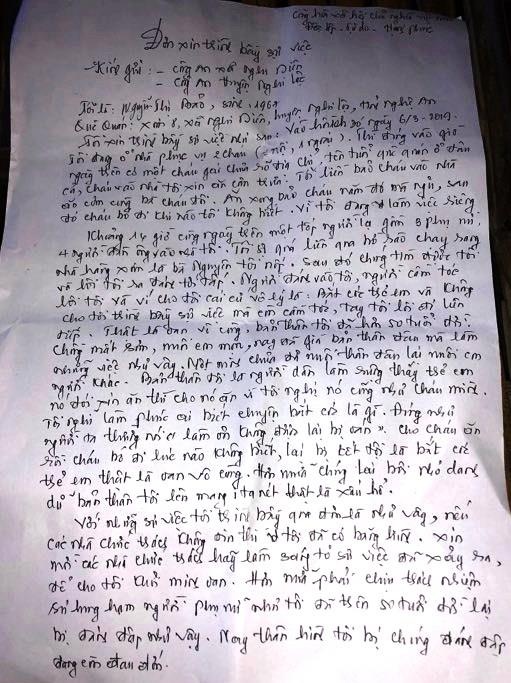 Cộng hòa xã hội chủ nghĩa việt nam
Độc lập - Tự do - Hạnh phúc
Đơn xin trình bày sự việc
- Kính gửi: - Công An xã Nghi Diên
- Công An huyện Nghi Lộc
Tôi là: Nguyễn Thị Bảo, sinh, 1969
Quê Quán: xóm 8, xã nghi Diên, huyện nghi lộc, tỉnh nghệ An
Tôi xin trình bày sự việc như sau: vào 30 ngày 6/3-2019.
Tôi đang ở nhà phục vụ 2 cháu (1 nội, 1 ngoại). Thì đúng vào giờ
ngày trên có một cháu gái chưa rõ địa chỉ, tên tuổi quê quán ở đâu
cả, cháu vào nhà tôi xin ăn cơm trưa. Tôi liền bảo cháu vào nhà
ăn cơm cùng bà cháu tôi. Ăn xong bảo cháu nằm đó mà ngủ, sau
đó cháu bỏ đi khi nào tôi không biết. vì tôi đang làm việc riêng
Khoảng 14 giờ cùng ngày trên một tốp người lạ gồm 3 phụ nữ,
4 người đàn ông vào nhà tôi. Tôi sợ quá liền qua bờ rào chạy sang
nhà hàng xóm là bà Nguyên tôi nấp. Sau đó chúng tìm được tôi
và lôi tôi ra đánh tới tấp. Người đánh vào tôi, người cầm tóc
lôi tôi ra vì cho tôi cái cử vô lý là: Bắt cóc trẻ em và không
cho tôi trình bày sự việc mà cứ cầm tóc, tay tôi lôi đi liên
tiếp. Thật là oan vô cùng. bản thân tôi đã hơn 50 tuổi đời
chồng mất sớm, nuôi con một, nay đã già bản thân đau mà làm
những việc như vậy. Nuôi mình chưa đủ một thân đâu lại nuôi em
người khác. Bản thân tôi là người dân làm ruộng thấy trẻ em
nó đói xin ăn thì cho nó ăn vì tôi nghĩ nó cũng như cháu mình.
Tôi nghĩ làm phúc ai biết chuyện bắt cóc là gì. Đúng như
người ta thường nói "làm ơn không đúng lại bị oan". Cho cháu ăn
rồi cháu bỏ đi lúc nào không biết, lại bị kết tội là bắt cóc
trẻ em thật là oan vô cùng. Hơn nữa chúng lại bôi nhọ danh
dự bản thân tôi lên mạng itanet thật là xấu hổ.
Với những sự việc tôi trình bày qua đơn là như vậy, nếu
các nhà chức trách không tin thì ở tôi đã có bằng chứng. Xin
mời các nhà chức trách hãy làm sáng tỏ sự việc đã xảy ra,
để cho tôi khỏi mình oan. Hơn nữa phải chịu trách nhiệm
sự hung hạm người phụ nữ như tôi đã trên 50 tuổi đời lại
bị đánh đập như vậy. Nay thân hình tôi bị chúng đánh đập
đang còn đau đớn.